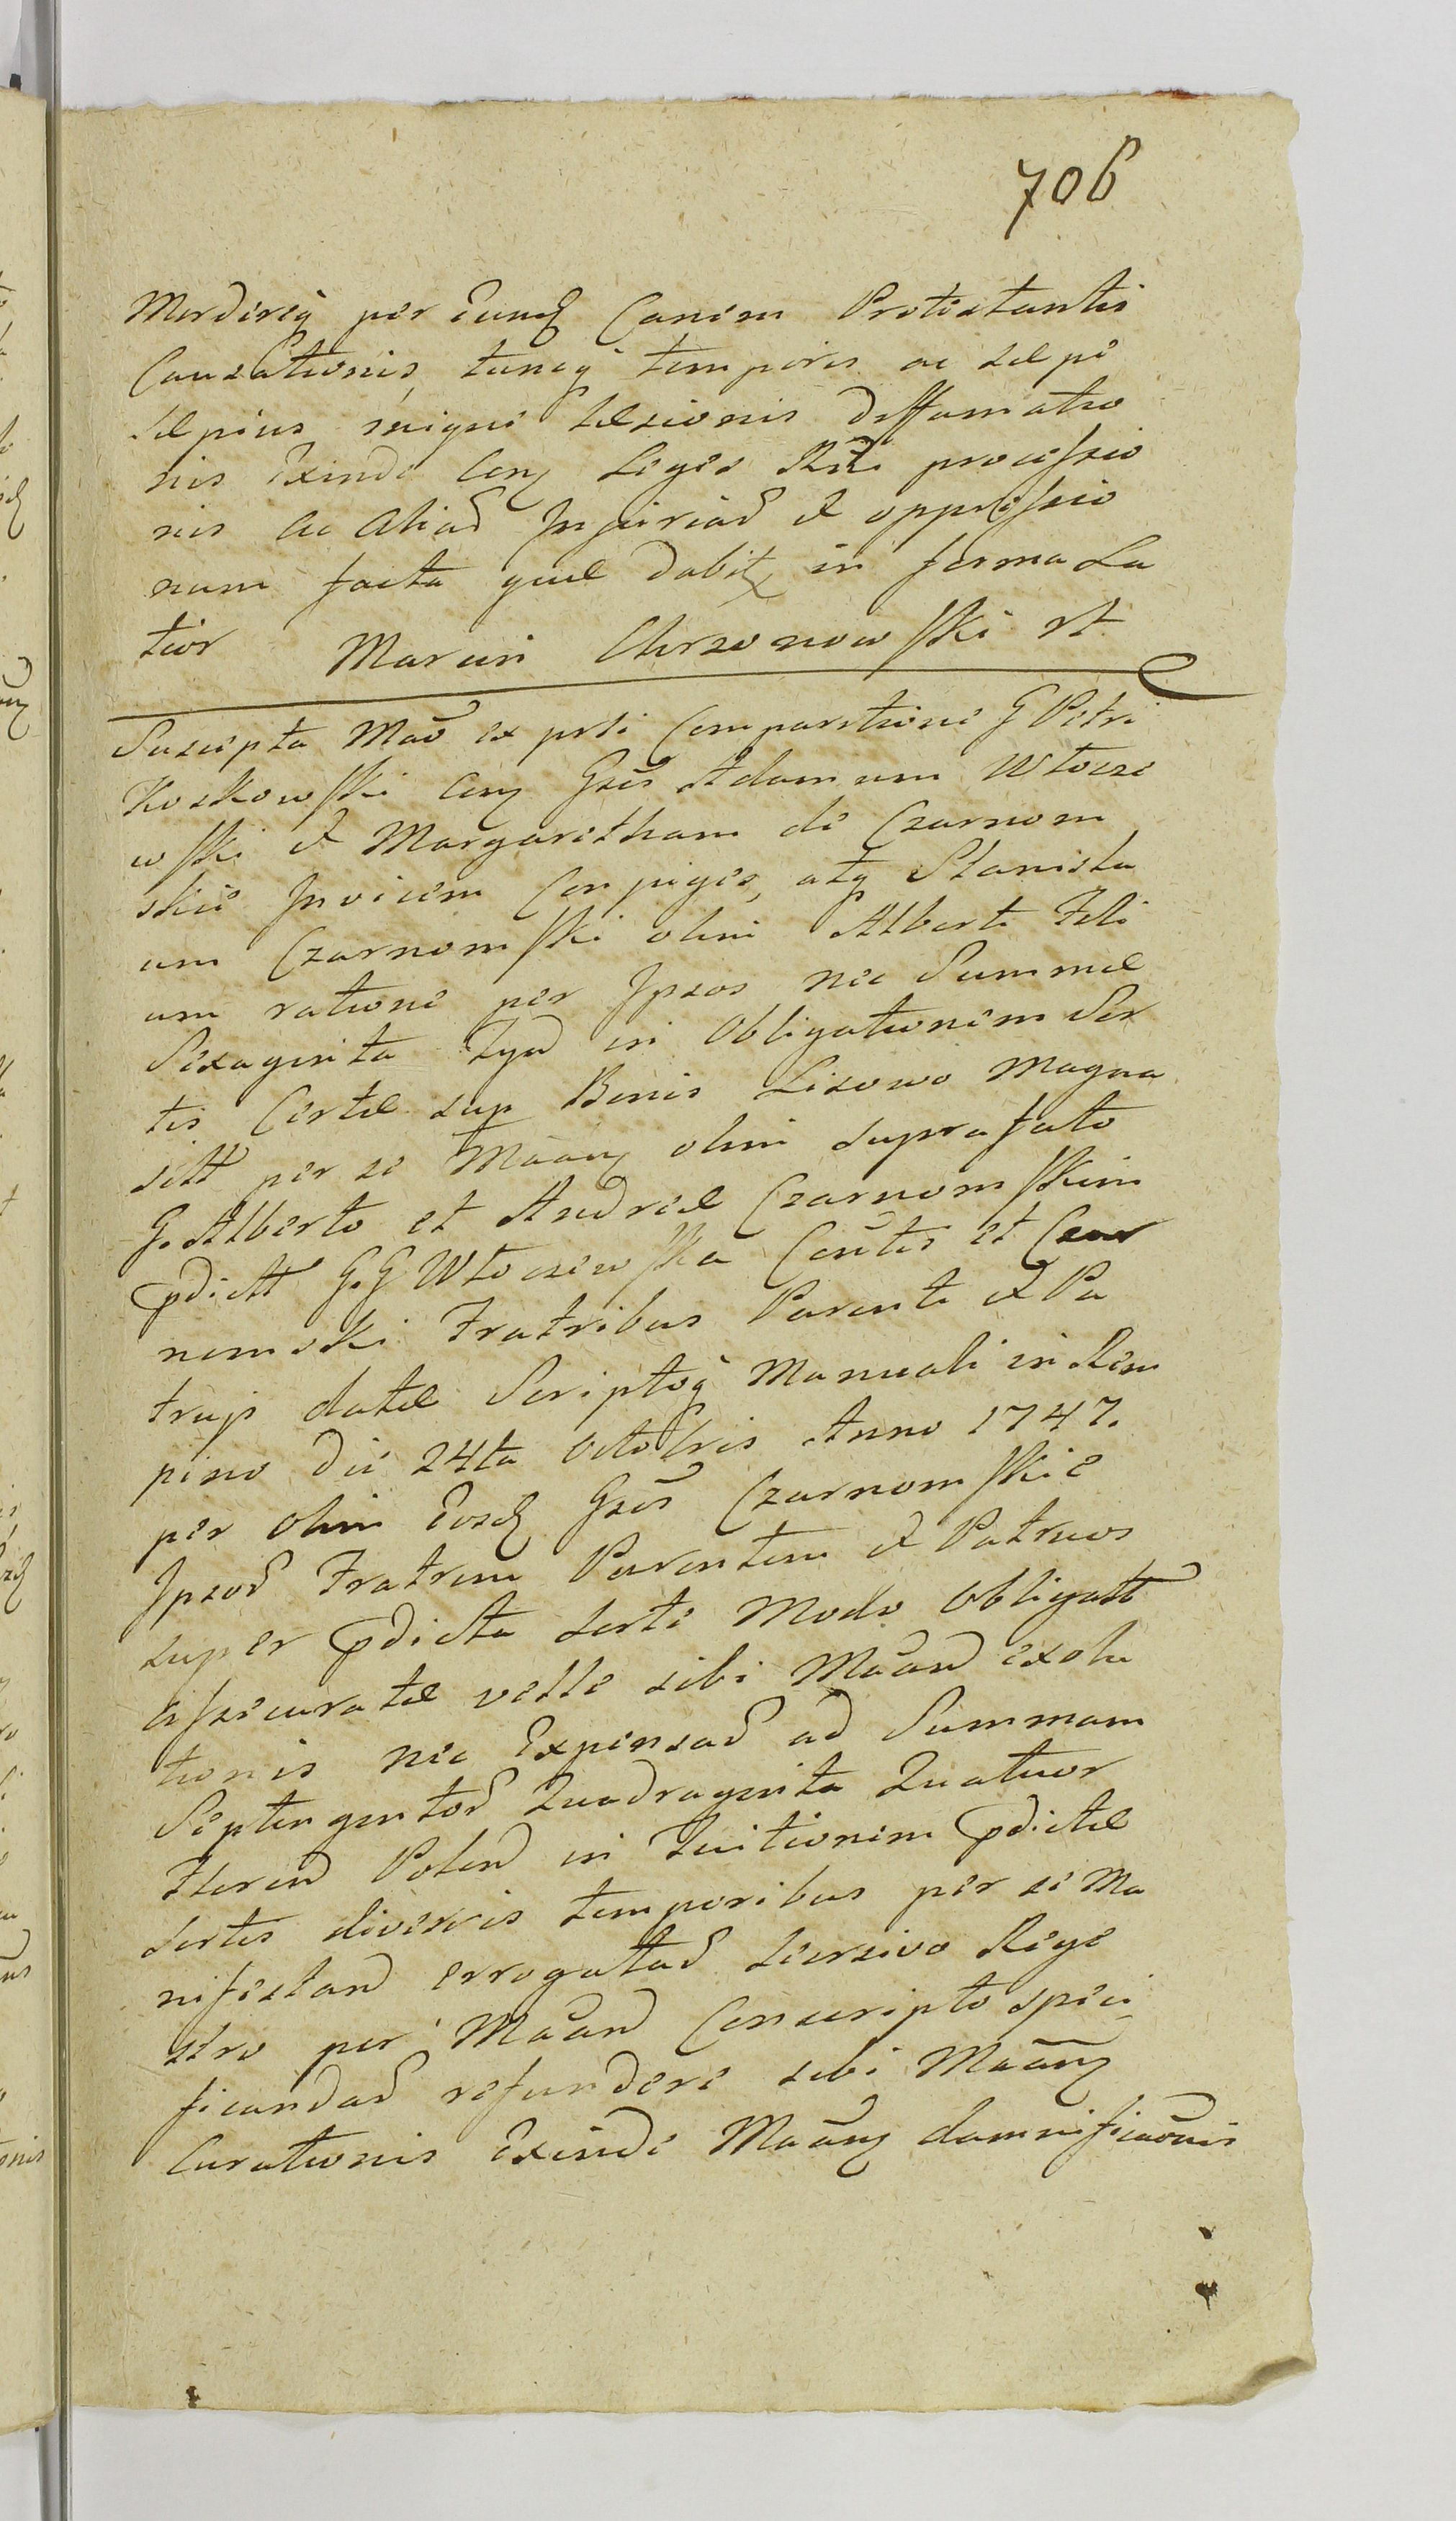 706
Mordereq per Eundē Canem Protestantis
Causationis, tuncq temporis ac saepe
saepius iniquè laesionis diffamatio
nis Exinde Conz Leges Rni processio
nis ac Aliar Injuriar et oppressio
num facta quae dabitz in forma La
tior Marcin Chrzonowski rt
Suscepta Mão ex prti Comparitione G Petri
Koskowski Conz Gsos Adamum Wtocze
wski et Margaretham de Czarnom
skie Invicem Conjuges, atq Stanisla
um Czarnomski olim Alberti Fili
um ratione per Ipsos nec Summae
Sexaginta Tyn in Obligationem Sor
tis Certae sup Bonis Lisowo Magna
sitt per se Mãanz olim suprafato
G. Alberto et Andreae Czarnomskim
pdictt G.G Wtoczewska Contis et Czar
nomski Fratribus Parenti et Pa
truis datae Scriptoq Manuali in Rem
pino die 24ta Octobris Anno 1747.
per olim Eosd Gsos Czarnomskie
Ipsor Fratrem Parentem et Patruos
super pdicta sorte Modo obligatt
assecuratae velle sibi Mãan exolu
tionis nec Expensar ad Summam
Septingentor Quadraginta Quatuor
Floren Polon in Tuitionem pdictae
sortis diversis temporibus per se Ma
nifestan errogatar seorsivo Rege
stro per Mãan Conscripto speci
ficandar refundere sibi Mãanz
Curationis Exinde Mãanz damnificãonis